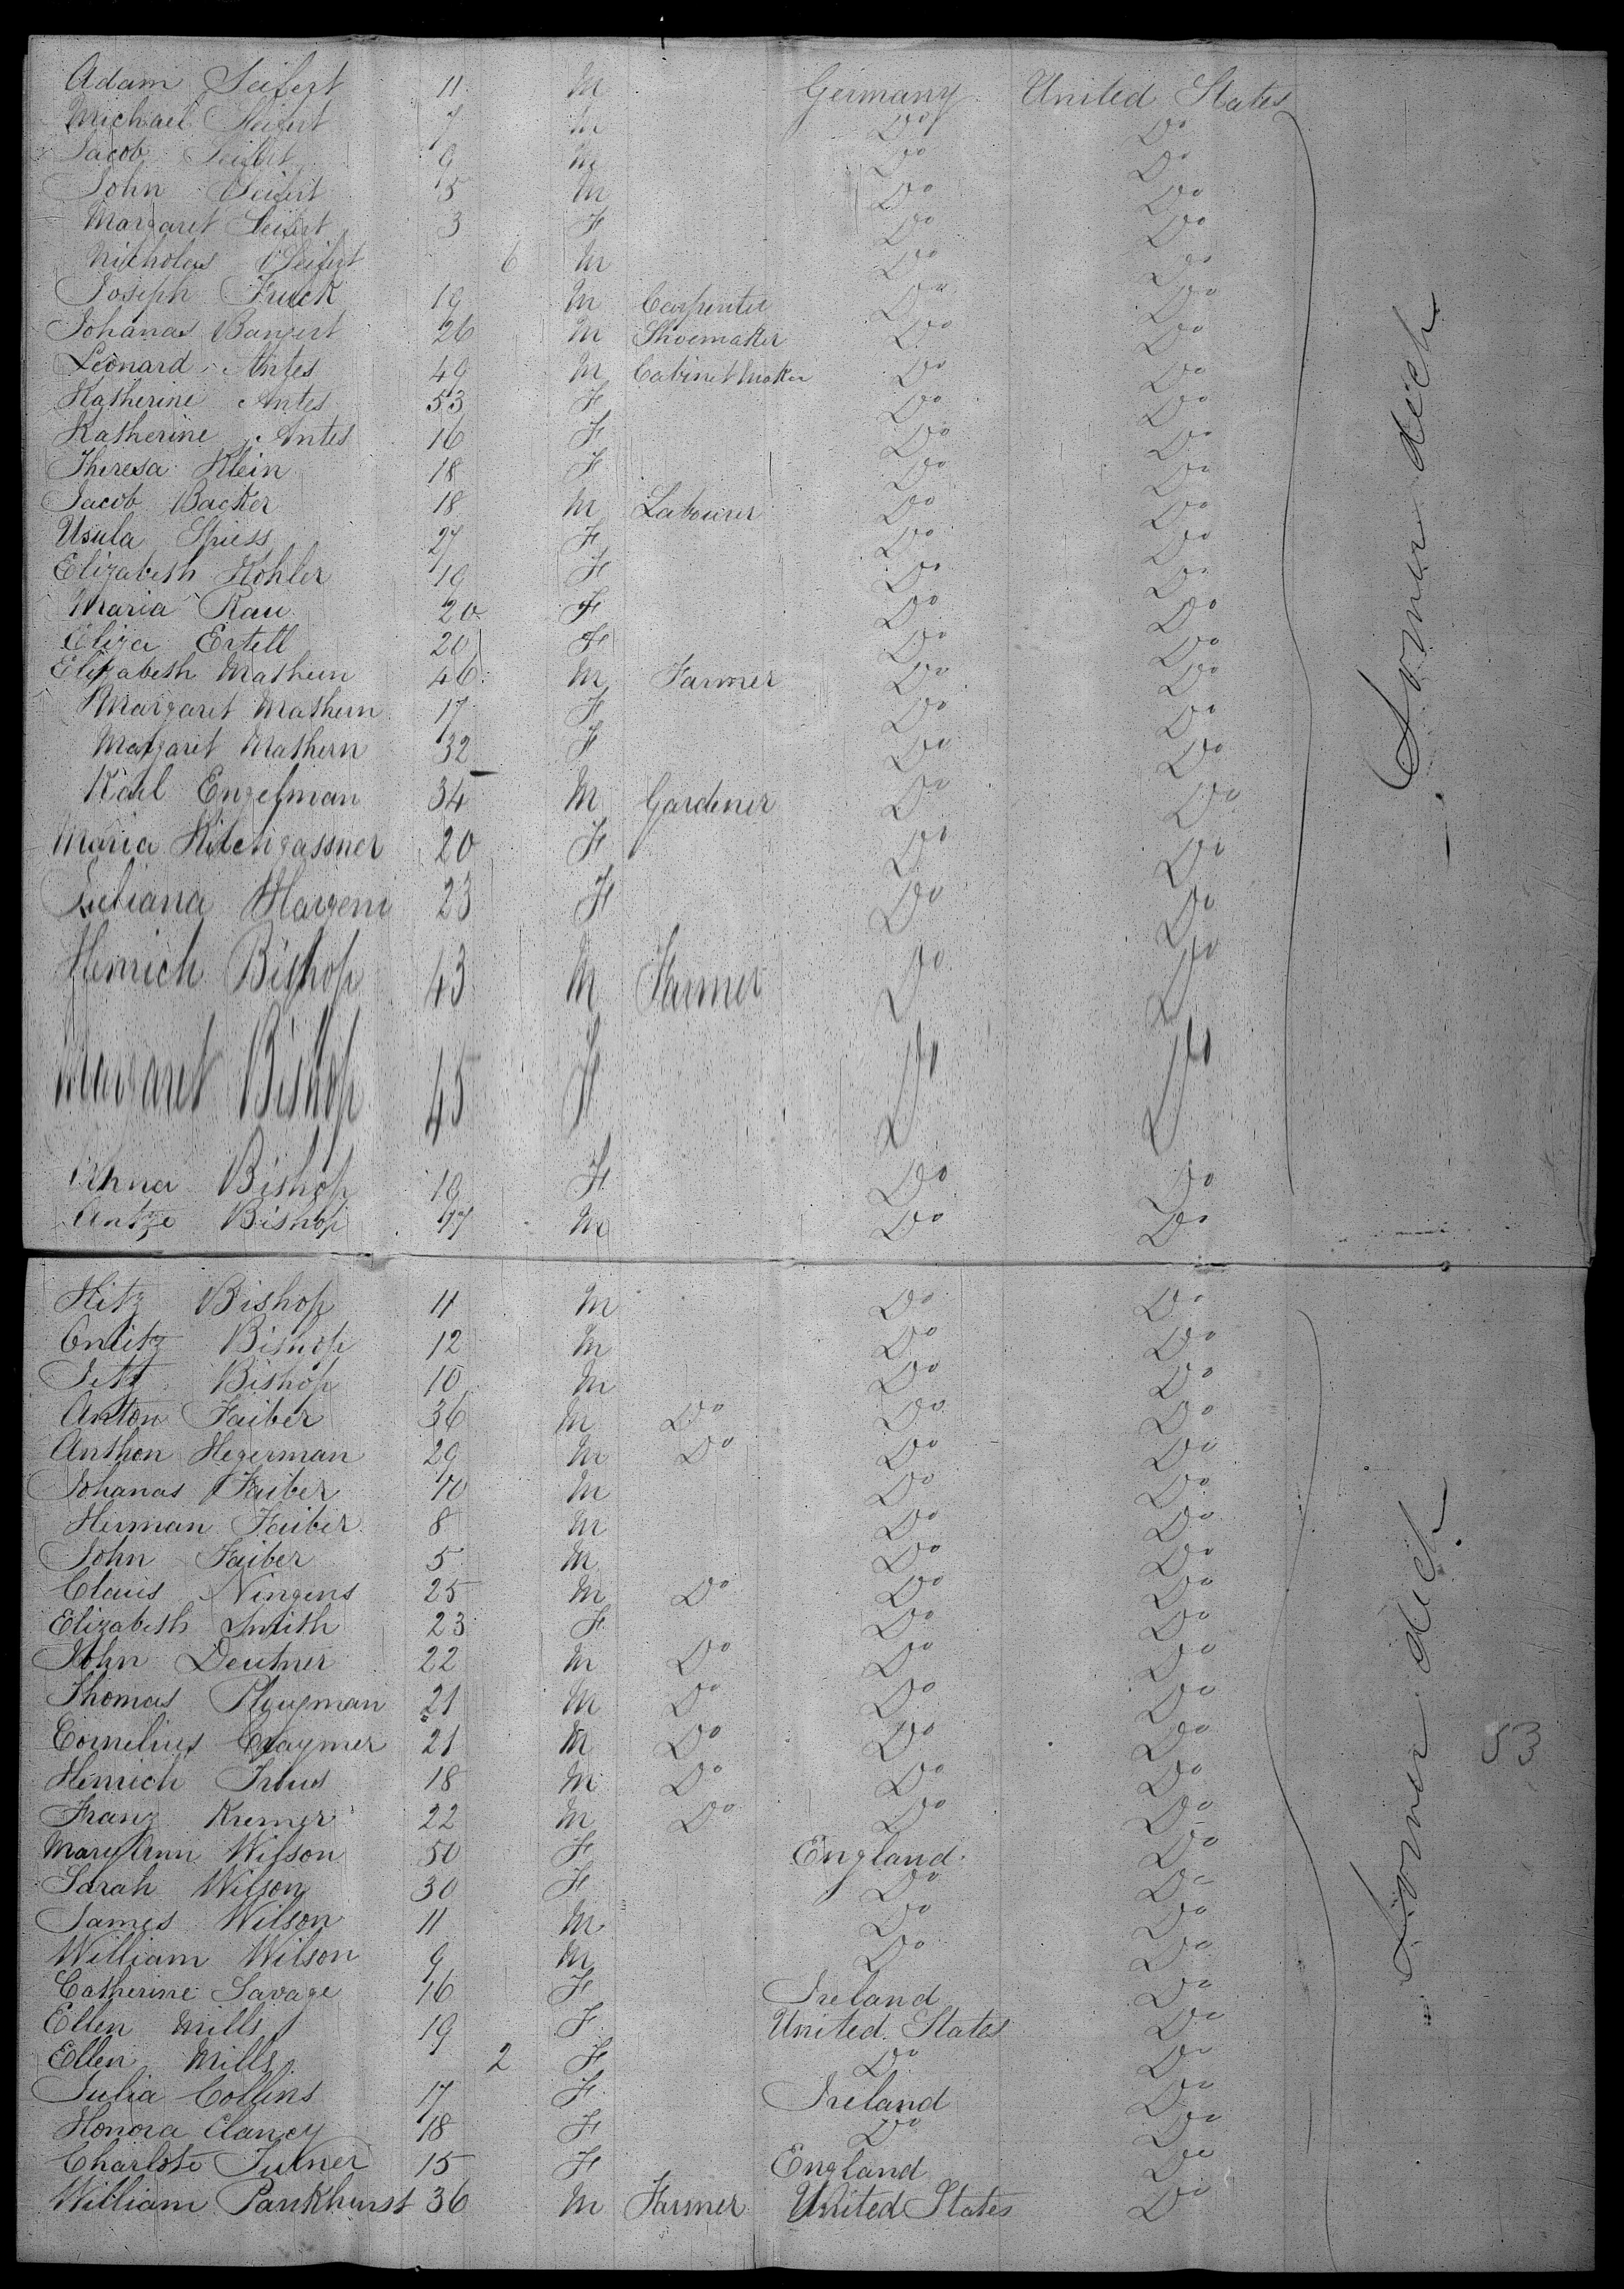 Adam Seifert 11 M Germany United States
Michael Seifert 7 M Do Do
Jacob Seifert 9 M Do Do
John Seifert 5 M Do Do
Margaret Seifert 3 F Do Do
Nicholas Seifert 6 M Do Do
Joseph Fruck 19 M Carpenter Do Do
Johanas Bangert 26 M Shoemaker Do Do
Leonard Antes 49 M Cabinet Maker Do Do
Katherine Antes 53 F Do Do
Katherine Antes 16 F Do Do
Theresa Klein 18 F Do Do
Jacob Backer 18 M Labourer Do Do
Usula Spiess 27 F Do Do
Elizabeth Kohler 19 F Do Do
Maria Rau 20 F Do Do
Eliza Ertell 20 F Do Do
Elizabeth Mathern 46 M Farmer Do Do
Margaret Mathern 17 F Do Do
Margaret Mathern 32 F Do Do
Karl Engelman 34 M Gardener Do Do
Maria Hilengassner 20 F Do Do
Juliana 23 F Do Do
Henrich Bishop 43 M Farmer Do Do
Margaret Bishop 45 F Do Do
Anna Bishop 19 F Do Do
Antze Bishop 17 M Do Do
Hitz Bishop 11 M Do Do
Bishop 12 M Do Do
Bishop 10 M Do Do
Anton Faiber 36 M Do Do Do
Anthon Hegerman 29 M Do Do Do
Johanas Faiber 10 M Do Do
Herman Faiber 8 M Do Do
John Faiber 5 M Do Do
Claus Ningens 25 M Do Do Do
Elizabeth Smith 23 F Do Do
John Deutner 22 M Do Do Do
Thomas Plougman 21 M Do Do Do
Cornelius Craymer 21 M Do Do Do
Henrich 18 M Do Do Do
Franz Kremer 22 M Do Do Do
Mary Ann Wilson 50 F England Do
Sarah Wilson 30 F Do Do
James Wilson 11 M Do Do
William Wilson 9 M Do Do
Catherine Savage 16 F Ireland Do
Ellen Mills 19 F United States Do
Ellen Mills 2 F Do Do
Julia Collins 17 F Ireland Do
Honora Clancy 18 F Do Do
Charlote Turner 15 F England Do
William Pankhurst 36 M Farmer United States Do
Lower deck
Lower deck
53